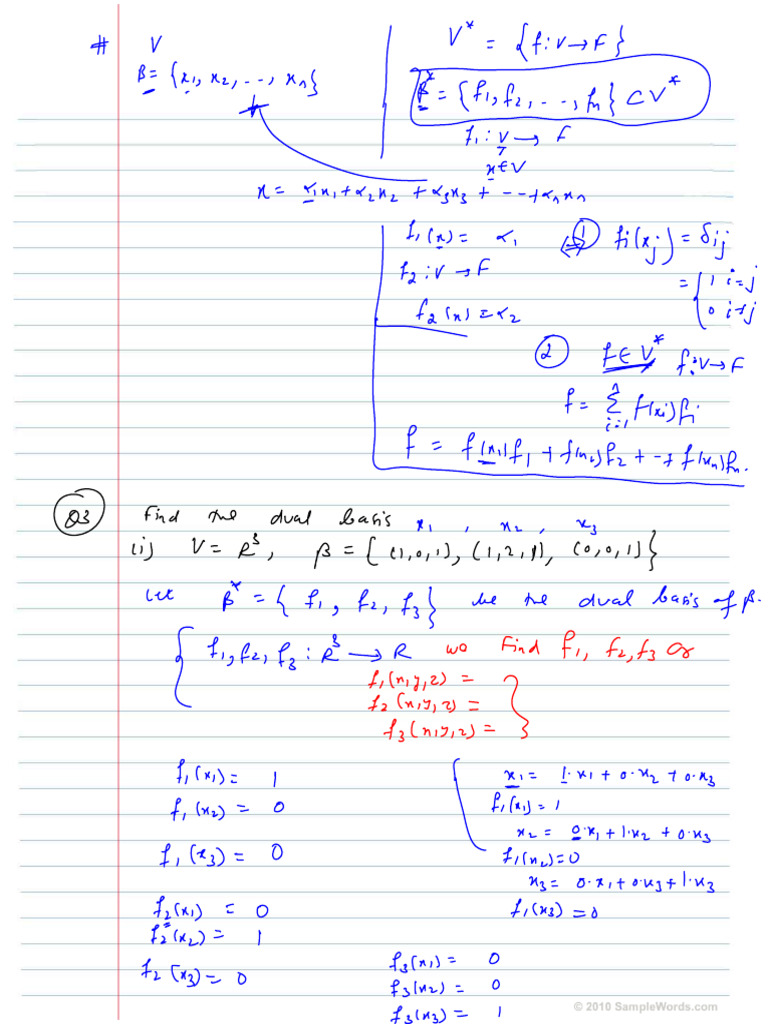 # V
β = {x₁, x₂, ..., xₙ}
V* = {f: V → F}
β* = {f₁, f₂, ..., fₙ} ⊂ V*
f₁ : V → F
x ∈ V
x = α₁x₁ + α₂x₂ + α₃x₃ + --- + αₙxₙ
f₁(x) = α₁
f₂ : V → F
f₂(x) = α₂
⇔ ① fi(xj) = δij
= { 1 i=j
0 i≠j
② f ∈ V* f: V → F
f = Σⁿᵢ₌₁ f(xi) fi
f = f(x₁)f₁ + f(x₂)f₂ + -- + f(xₙ)fₙ.
Q3 Find the dual basis x₁, x₂, x₃
(i) V = R³, β = {(1,0,1), (1,2,1), (0,0,1)}
Let β* = {f₁, f₂, f₃} be the dual basis of β.
{ f₁, f₂, f₃ : R³ → R we Find f₁, f₂, f₃ or
f₁(x,y,z) =
f₂(x,y,z) =
f₃(x,y,z) =
f₁(x₁) = 1
f₁(x₂) = 0
f₁(x₃) = 0
x₁ = 1·x₁ + 0·x₂ + 0·x₃
f₁(x₁) = 1
x₂ = 0·x₁ + 1·x₂ + 0·x₃
f₁(x₂) = 0
x₃ = 0·x₁ + 0·x₃ + 1·x₃
f₁(x₃) = 0
f₂(x₁) = 0
f₂(x₂) = 1
f₂(x₃) = 0
f₃(x₁) = 0
f₃(x₂) = 0
f₃(x₃) = 1
© 2010 SampleWords.com